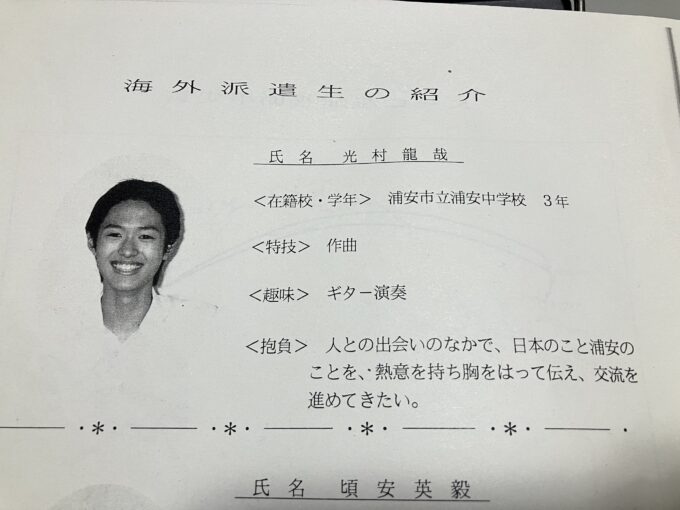 海外派遣生の紹介
氏名 光村龍哉
<在籍校・学年> 浦安市立浦安中学校 3年
<特技> 作曲
<趣味> ギター演奏
<抱負> 人との出会いのなかで、日本のこと浦安の
ことを、熱意を持ち胸をはって伝え、交流を
進めてきたい。
氏名 頃安英毅